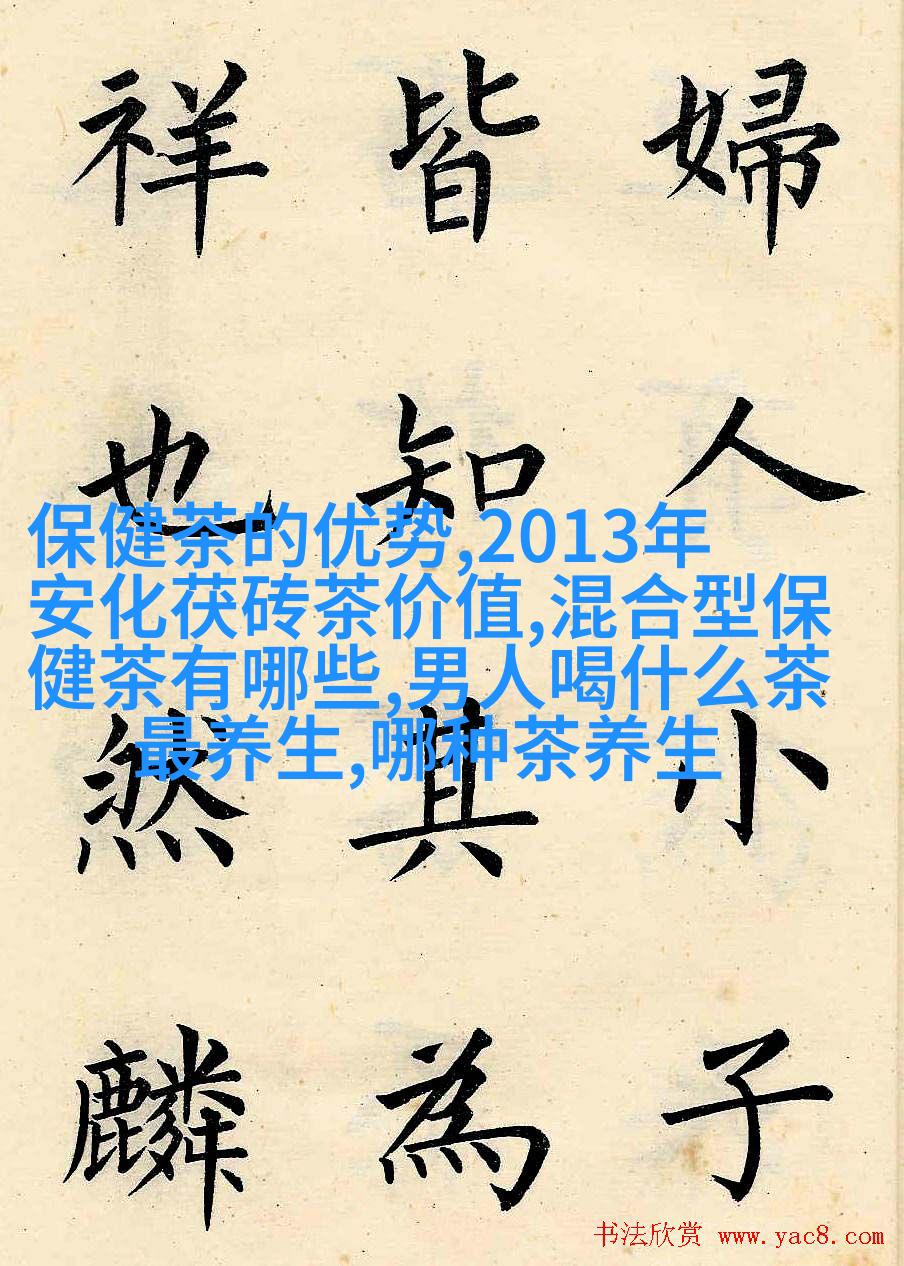 婦人小子
皆知其為
祥也然麟
保健茶的优势,2013年
安化茯砖茶价值,混合型保
健茶有哪些,男人喝什么茶
最养生,哪种茶养生
书法欣赏 www.yac8.com